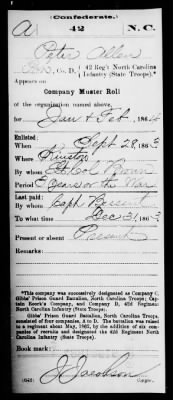 (Confederate.)
A 42 N.C.
Peter Allen
Co. D, 42 Reg't North Carolina
Infantry (State Troops).*
Appears on
Company Muster Roll
of the organization named above,
for Jan & Feb, 186
Enlisted:
When Sept 28, 186
Where Kinston
By whom Lt Col Brown
Period 3 years or the War
Last paid:
By whom Capt Bessent
To what time Dec 31, 186
Present or absent Present
Remarks:
*This company was successively designated as Company C,
Gibbs' Prison Guard Battalion, North Carolina Troops; Cap-
tain Company D, 42d Regiment North
Carolina Infantry (State Troops).
Gibbs' Prison Guard Battalion, North Carolina Troops,
consisted of four companies, A to D. The battalion was raised
to a regiment about May, 1862, by the addition of six com-
panies of recruits and designated the 42d Regiment North
Carolina Infantry (State Troops).
Book mark:
J Jacobson
(642) Copyist.